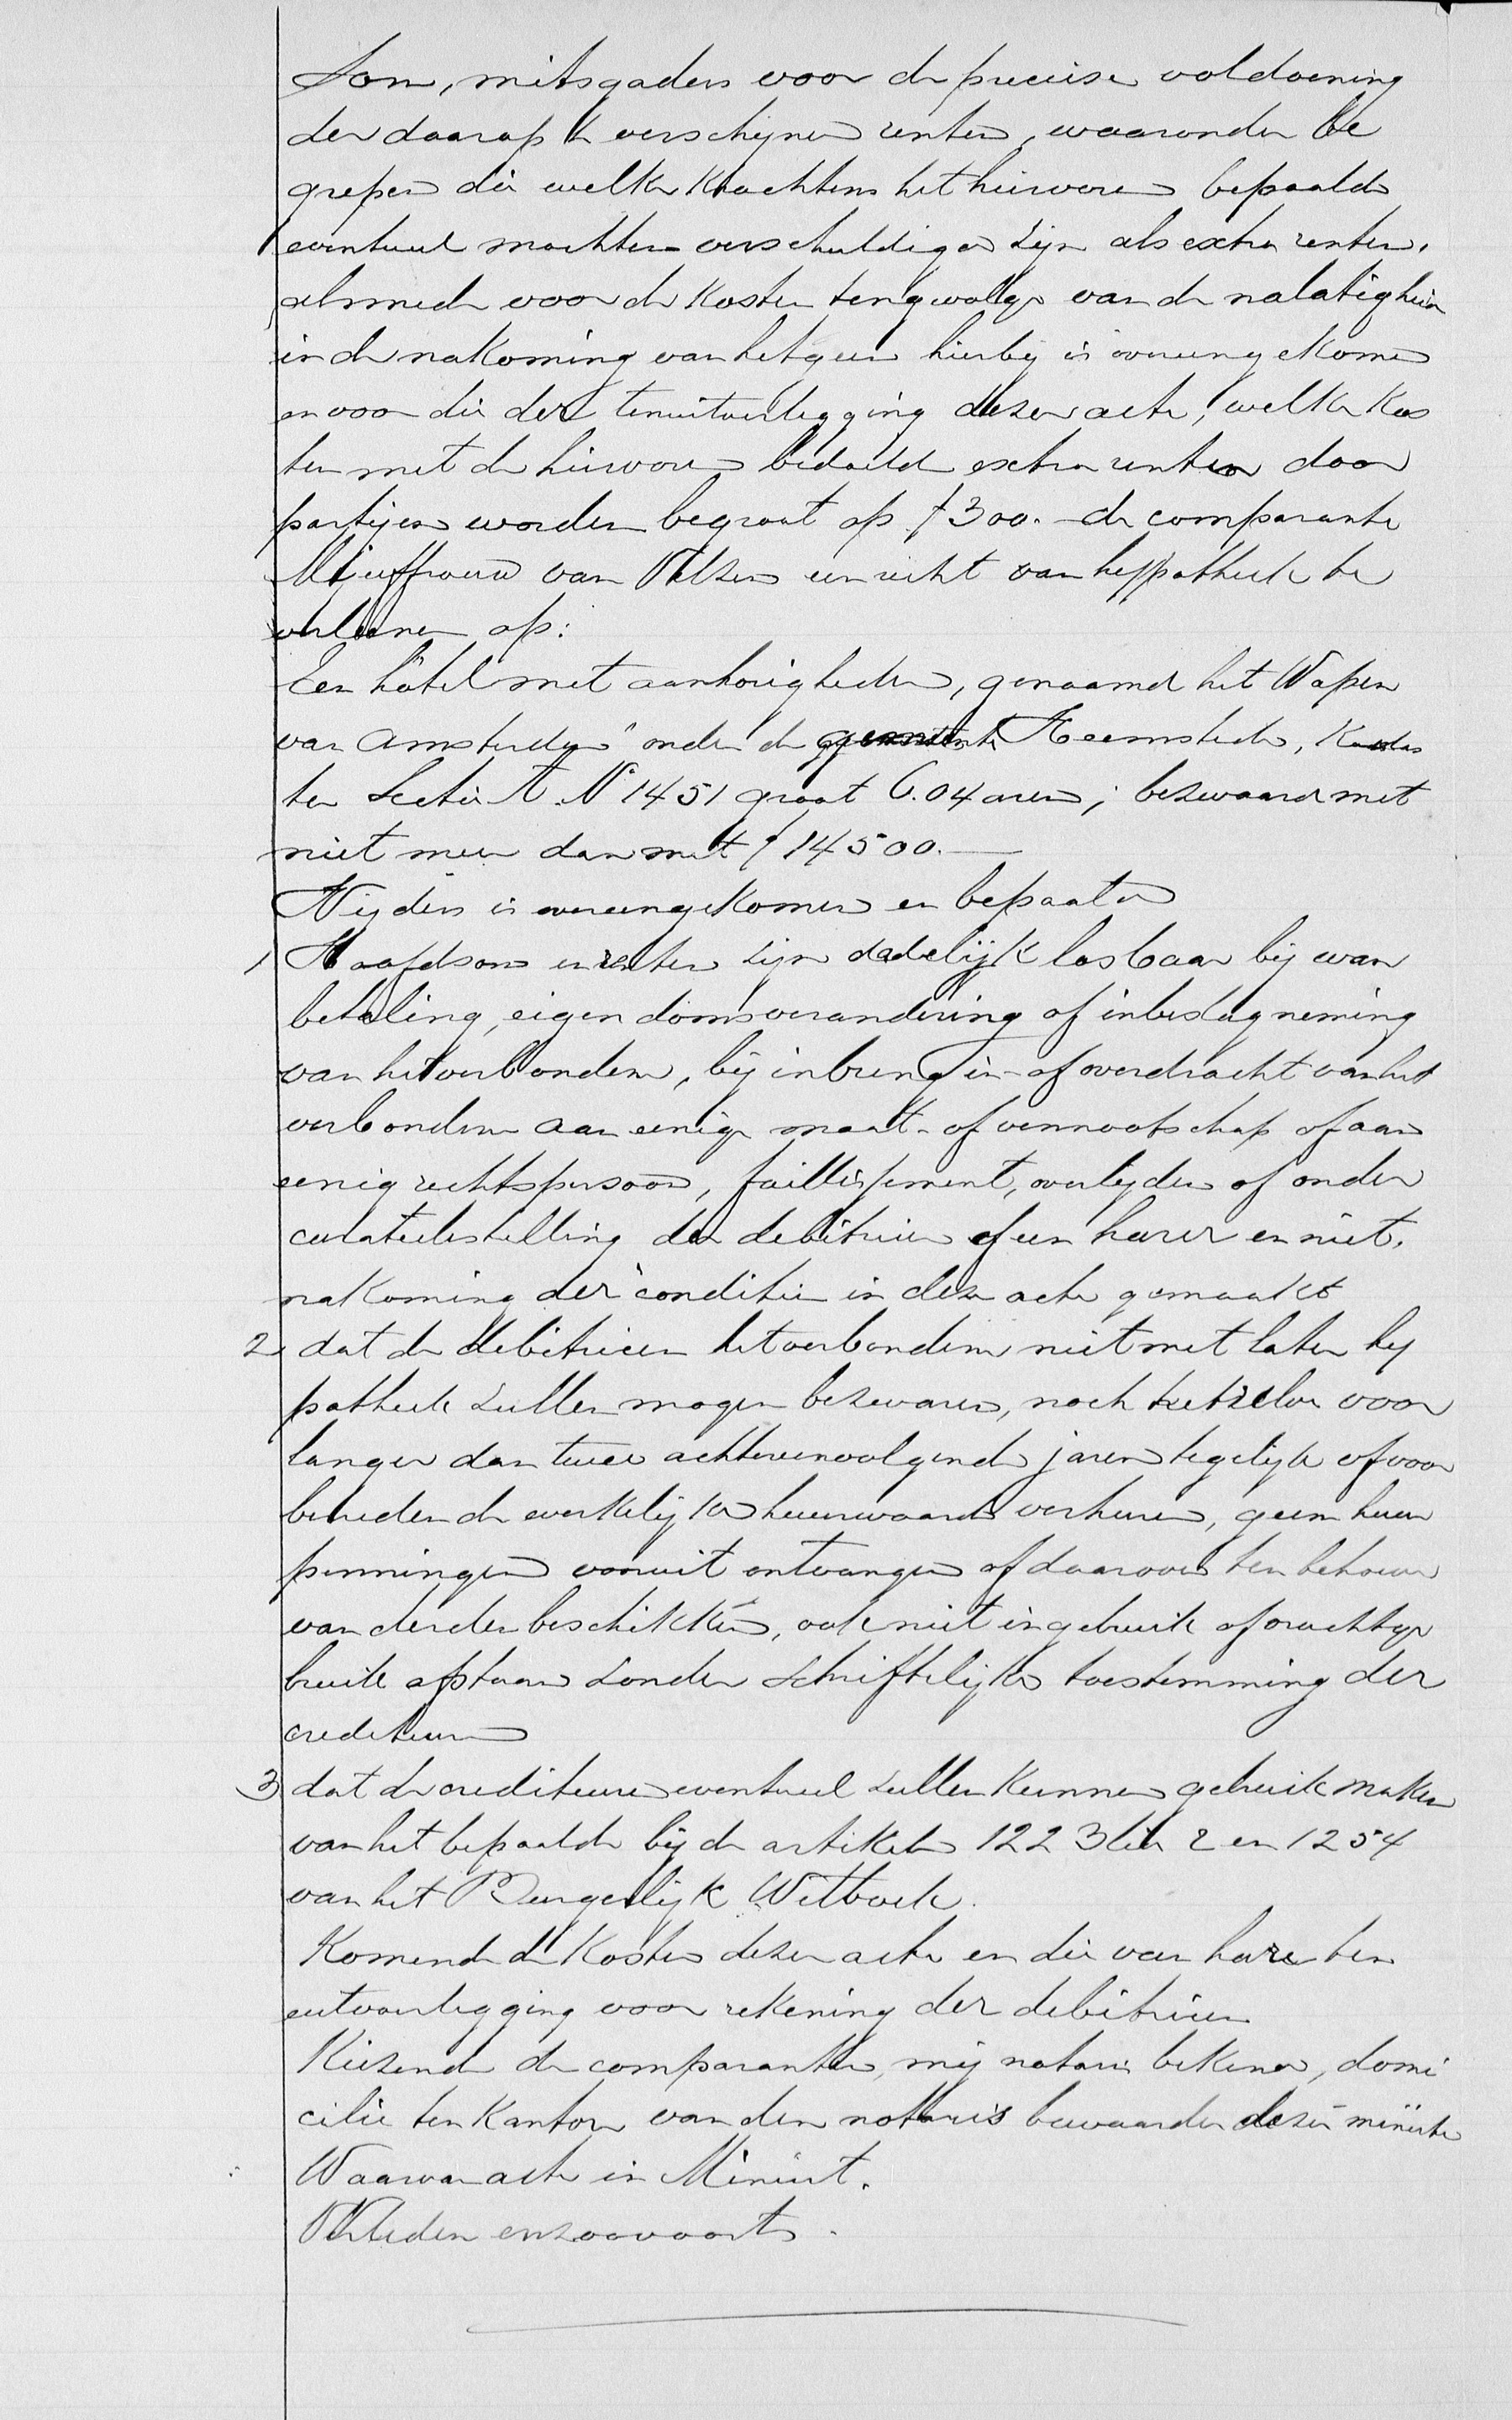 Som, mitsgaders voor de precise voldoening
der daarop te verschijnen renten, waaronder be
grepen die welke krachtens het hiervoren bepaalde
eventueel mochten verschuldigd zijn als extra renten,
alsmede voor de kosten tengevolge van de nalatigheid
in de nakoming van hetgeen hierbij is overeengekomen
en voor die der tenuitverlegging dezer acte, welke kos
ten met de hiervoren bedoelde extra renten door
partijen worden begroot op ƒ 300.- de comparante
Mejuffrouw van Velsen een recht van hypotheek te
verleenen op:
Een hôtel met aanhorigheden, genaamd het Wapen
van Amsterdam" onder de gemeente Heemstede, Kadas
ter Sectie A No 1451 groot 6.04 aren; bezwaard met
niet meer dan met ƒ 14500.—
Wijders is overeengekomen en bepaald
1 Hoofdsom en renten zijn dadelijk losbaar bij wan
betaling, eigendomsverandering of inbeslagneming
van het verbonden, bij inbreng in of overdracht van het
verbonden aan eenige maat- of vennootschap of aan
eenig rechtspersoon, faillissement, overlijden of onder
curateelestelling der debitricen of een harer en niet.
nakoming der conditien in deze acte gemaakt
2 dat de debitricen het verbonden niet met later hy
potheek zullen mogen bezwaren, noch hetzelve voor
langer dan twee achtereenvolgende jaren tegelijk of voor
beneden de werkelijke huurwaarde verhuren, geen huur
penningen vooruit ontvangen of daarover ten behoeve
van derden beschikken, ook niet in gebruik of vruchtge
bruik afstaan zonder schriftelijke toestemming der
crediteuren
3 dat de crediteuren eventueel zullen kunnen gebruik maken
van het bepaalde bij de artikelen 1223 lid 2 en 1254
van het Burgerlijk Wetboek.
Komende de kosten dezer acte en die van hare ten
uitvoerlegging voor rekening der debitricen
Kiezende de comparanten, mij notaris bekend, domi
cilie ten kantore van den notaris bewaarder dezer minute
Waarvan acte in Minuut.
Verleden enzoovoorts.